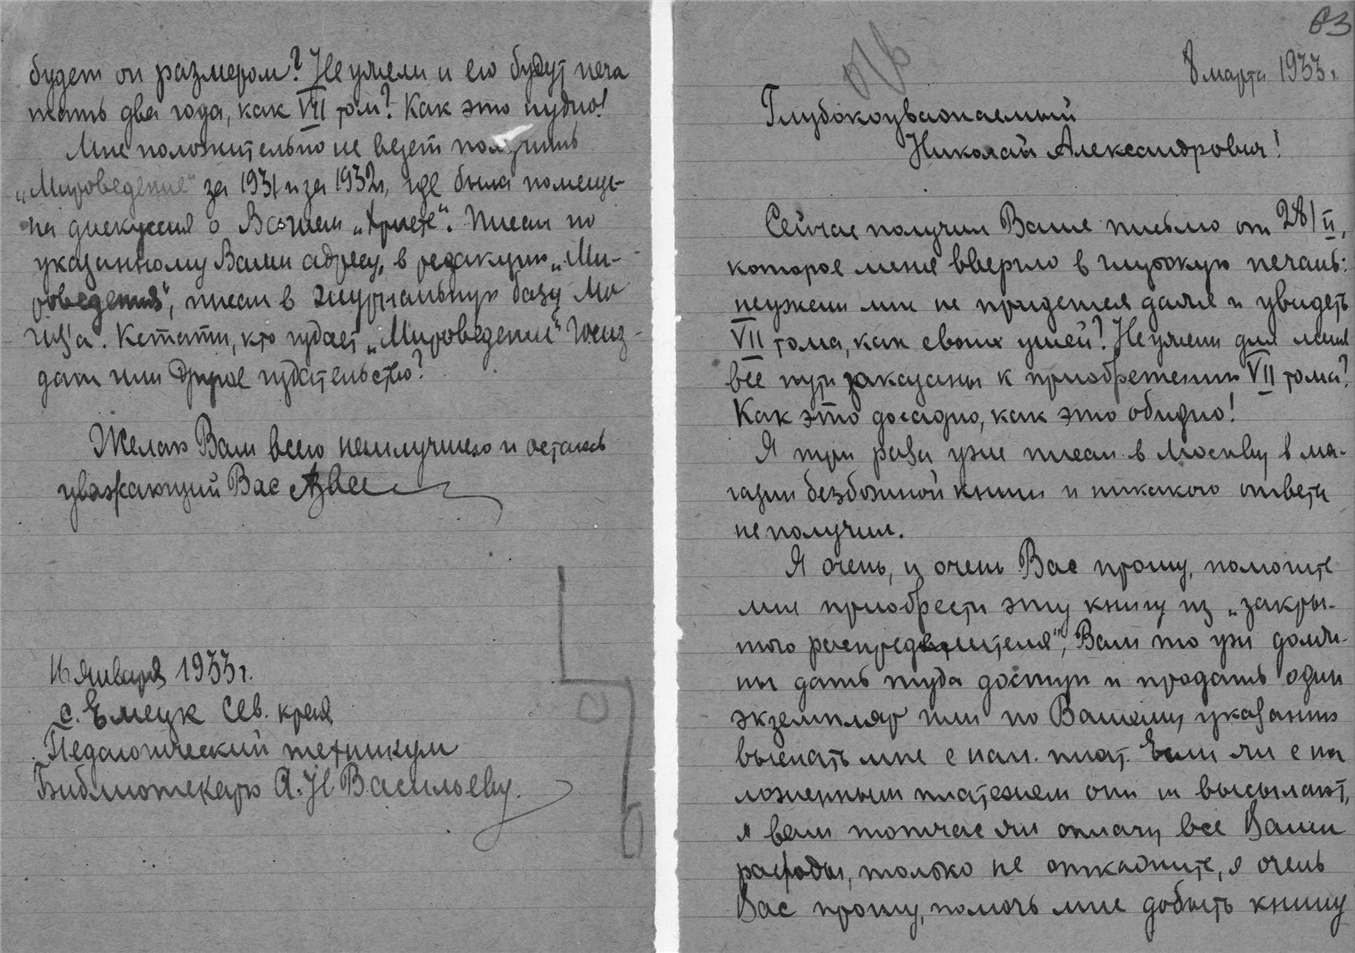 будет он размером? Неужели и его будут печа
тать два года, как VII том? Как это нудно!
Мне положительно не везет получить
„Мироведение" за 1931 и за 1932г, где была помеще-
на дискуссия о Вашем „Христе". Писал по
указанному Вами адресу, в редакцию „Ми-
роведения", писал в журнальную базу Мо
гиза. Кстати, кто издает „Мироведение" Госиз-
дат или другое издательство?
Желаю Вам всего наилучшего и остаюсь
уважающий Вас АВас
января 1933г.
с. Емецк Сев. края
Педагогический техникум
Библиотекарю А. Н Васильеву.
83
отв
8 марта 1933г.
Глубокоуважаемый
Николай Александрович!
Сейчас получил Ваше письмо от 28/II,
которое меня ввергло в глубокую печаль:
неужели мне не придется даже и увидеть
VII тома, как своих ушей? Неужели для меня
все пути заказаны к приобретению VII тома?
Как это досадно, как это обидно!
Я три раза уже писал в Москву в ма-
газин безбожной книги и никакого ответа
не получил.
Я очень, и очень Вас прошу, помогите
мне приобрести эту книгу из „закры-
того распределителя", Вам то уж долж-
ны дать туда доступ и продать один
экземпляр или по Вашему указанию
выслать мне с нал. плат. Если же с на
ложенным платежем они не высылают,
я Вам тотчас же оплачу все Ваши
расходы, только не откажите, я очень
Вас прошу, помочь мне добыть книгу